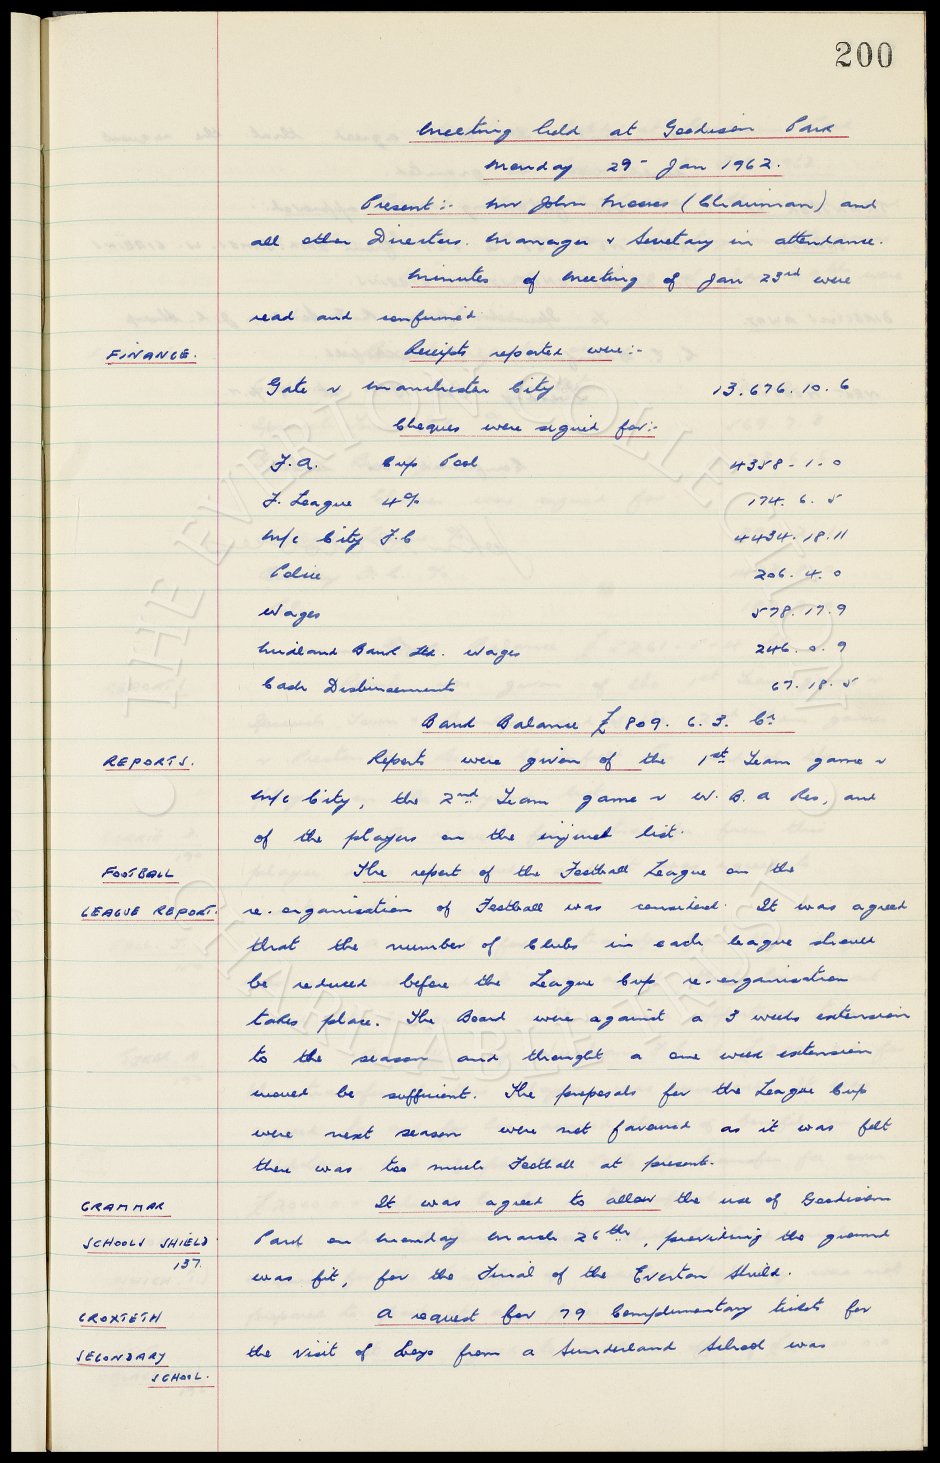 200
Meeting held at Goodison Park
Monday 29- Jan 1962.
Present :- Mr John Moores (Chairman) and
all other Directors. Manager & Secretary in attendance.
Minutes of Meeting of Jan 23rd were
read and confirmed
FINANCE. Receipts reported were :-
Gate v Manchester City 13.676.10.6
Cheques were signed for:-
F.A. Cup Pool 4358-1-0
F. League 4% 174.6.5
M/c City F.C 4434.18.11
Police 206.4.0
Wages 578.17.9
Midland Bank Ltd. Wages 246.0.9
Cash Disbursements 67.18.5
Bank Balance £809.6.3. Cr
REPORTS. Reports were given of the 1st Team game v
M/c City, the 2nd Team game v W.B.A Res, and
of the players on the injured list.
FOOTBALL The report of the Football League on the
LEAGUE REPORT. re-organisation of Football was considered. It was agreed
that the number of Clubs in each league should
be reduced before the League Cup re-organisation
takes place. The Board were against a 3 weeks extension
to the season and thought a one week extension
would be sufficient. The proposals for the League Cup
were next season were not favoured as it was felt
there was too much Football at present.
GRAMMAR It was agreed to allow the use of Goodison
SCHOOLS SHIELD Park on Monday March 26th, providing the ground
137.
was fit, for the Final of the Everton Shield.
CROXTETH A request for 79 Complimentary tickets for
SECONDARY the visit of boys from a Sunderland School was
SCHOOL.
THE EVERTON COLLECTION
CHARITABLE TRUST